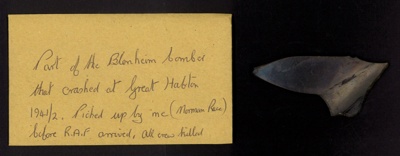 Part of the Blenheim bomber
that crashed at Great Habton
1941/2. Picked up by me (Norman Rew)
before R.A.F. arrived, all crew killed